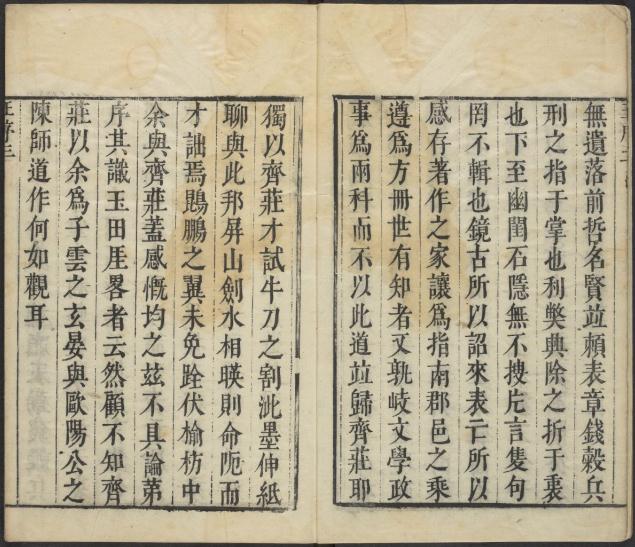 無遺落前哲名賢竝賴表章錢穀兵
刑之指于掌也利弊興除之折于衷
也下至幽閨石隱無不搜片言隻句
罔不輯也鏡古所以詔來表亡所以
感存著作之家讓爲指南郡邑之乘
遵爲方冊世有知者又孰岐文學政
事爲兩科而不以此道竝歸齊莊耶
獨以齊莊才試牛刀之割泚墨伸紙
聊與此邦屏山劍水相暎則命阨而
才詘焉鵾鵬之翼未免跧伏榆枋中
余與齊莊蓋感慨均之玆不具論第
序其識玉田厓畧者云然顧不知齊
莊以余爲子雲之玄晏與歐陽公之
陳師道作何如觀耳
王序三